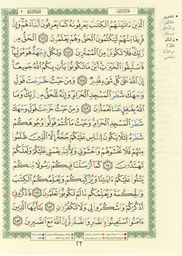 ٱلَّذِينَ ءَاتَيْنَٰهُمُ ٱلْكِتَٰبَ يَعْرِفُونَهُۥ كَمَا يَعْرِفُونَ أَبْنَآءَهُمْ
وَإِنَّ فَرِيقًا مِّنْهُمْ لَيَكْتُمُونَ ٱلْحَقَّ وَهُمْ يَعْلَمُونَ ١٤٦ ٱلْحَقُّ مِن
رَّبِّكَ فَلَا تَكُونَنَّ مِنَ ٱلْمُمْتَرِينَ ١٤٧ وَلِكُلٍّ وِجْهَةٌ هُوَ مُوَلِّيهَا
فَٱسْتَبِقُوا۟ ٱلْخَيْرَٰتِ أَيْنَ مَا تَكُونُوا۟ يَأْتِ بِكُمُ ٱللَّهُ جَمِيعًا
إِنَّ ٱللَّهَ عَلَىٰ كُلِّ شَىْءٍ قَدِيرٌ ١٤٨ وَمِنْ حَيْثُ خَرَجْتَ فَوَلِّ
وَجْهَكَ شَطْرَ ٱلْمَسْجِدِ ٱلْحَرَامِ وَإِنَّهُۥ لَلْحَقُّ مِن رَّبِّكَ وَمَا ٱللَّهُ
بِغَٰفِلٍ عَمَّا تَعْمَلُونَ ١٤٩ وَمِنْ حَيْثُ خَرَجْتَ فَوَلِّ وَجْهَكَ
شَطْرَ ٱلْمَسْجِدِ ٱلْحَرَامِ وَحَيْثُ مَا كُنتُمْ فَوَلُّوا۟ وُجُوهَكُمْ
شَطْرَهُۥ لِئَلَّا يَكُونَ لِلنَّاسِ عَلَيْكُمْ حُجَّةٌ إِلَّا ٱلَّذِينَ ظَلَمُوا۟
مِنْهُمْ فَلَا تَخْشَوْهُمْ وَٱخْشَوْنِى وَلِأُتِمَّ نِعْمَتِى عَلَيْكُمْ وَلَعَلَّكُمْ
تَهْتَدُونَ ١٥٠ كَمَآ أَرْسَلْنَا فِيكُمْ رَسُولًا مِّنكُمْ يَتْلُوا۟
عَلَيْكُمْ ءَايَٰتِنَا وَيُزَكِّيكُمْ وَيُعَلِّمُكُمُ ٱلْكِتَٰبَ
وَٱلْحِكْمَةَ وَيُعَلِّمُكُم مَّا لَمْ تَكُونُوا۟ تَعْلَمُونَ ١٥١
فَٱذْكُرُونِىٓ أَذْكُرْكُمْ وَٱشْكُرُوا۟ لِى وَلَا تَكْفُرُونِ ١٥٢ يَٰٓأَيُّهَا ٱلَّذِينَ
ءَامَنُوا۟ ٱسْتَعِينُوا۟ بِٱلصَّبْرِ وَٱلصَّلَوٰةِ إِنَّ ٱللَّهَ مَعَ ٱلصَّٰبِرِينَ ١٥٣
٢٣